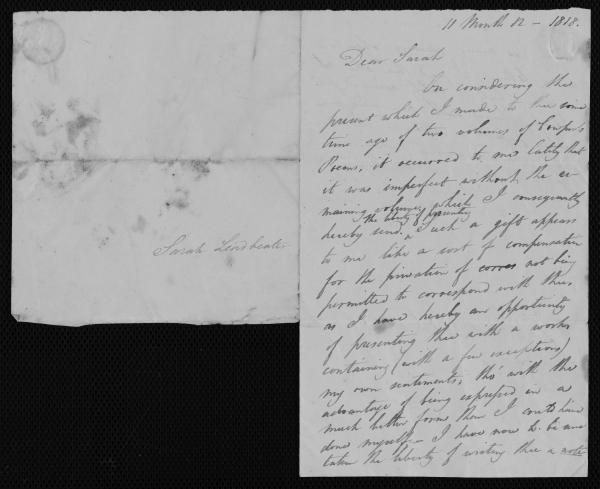 Sarah Leadbeater
11 Month 12 - 1818.
Dear Sarah
On considering the
present which I made to thee some
time ago of two volumes of Cowper's
Poems, it occurred to me lately that
it was imperfect without the re-
maining volumes, which I consequently
hereby send. the liberty of presenting
Such a gift appears
to me like a sort of compensation
for the privation of corres not being
permitted to correspond with thee,
as I have hereby an opportunity
of presenting thee with a work
containing (with a few exceptions)
my own sentiments, tho' with the
advantage of being expressed in a
much better form than I could have
done myself - I have now to be
taken the liberty of writing thee a note